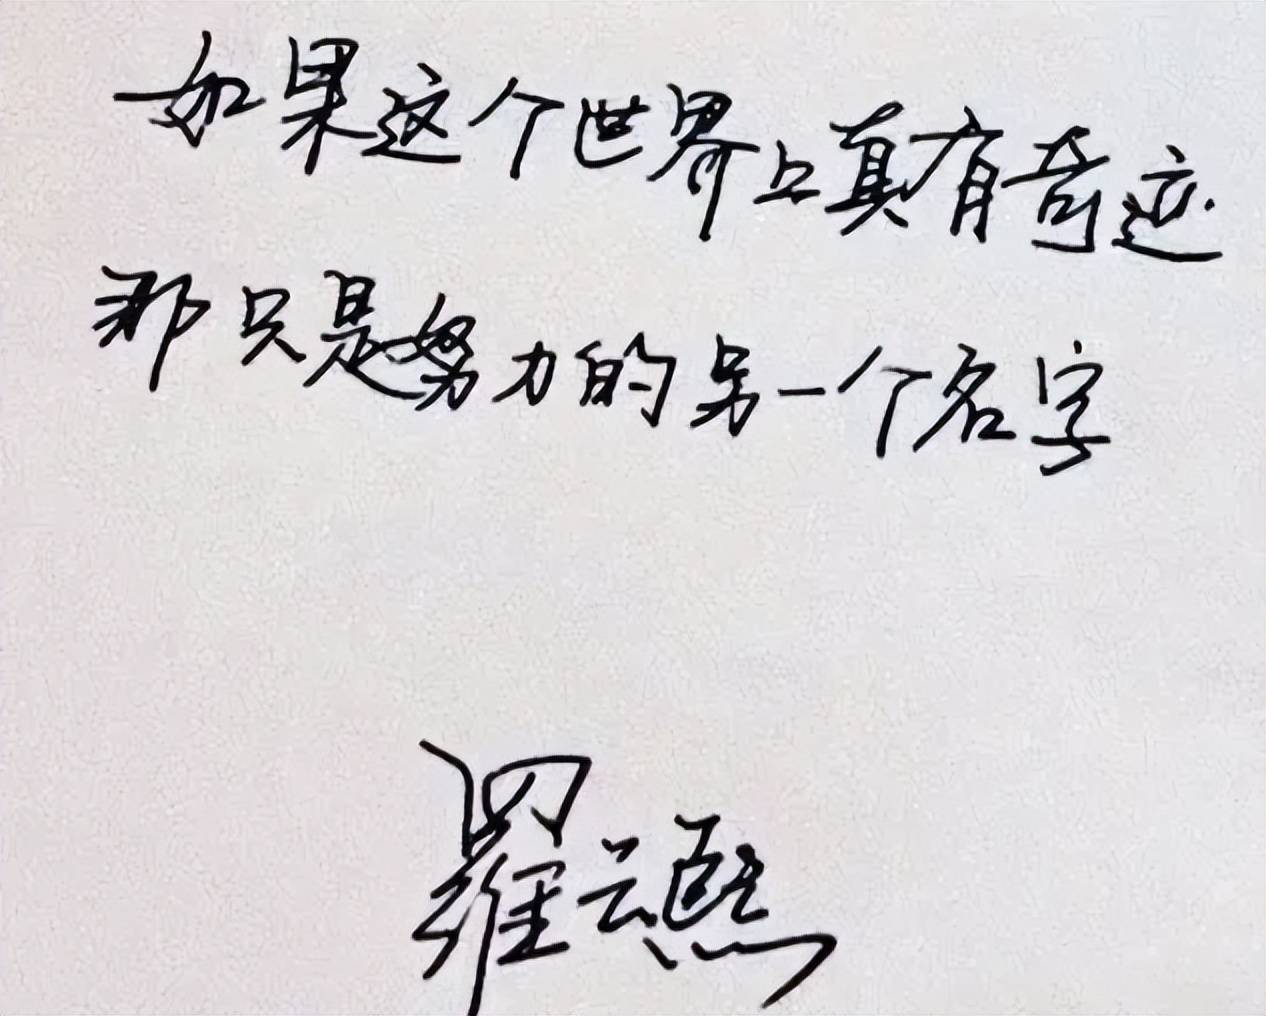 如果这个世界上真有奇迹
那只是努力的另一个名字
羅云熙